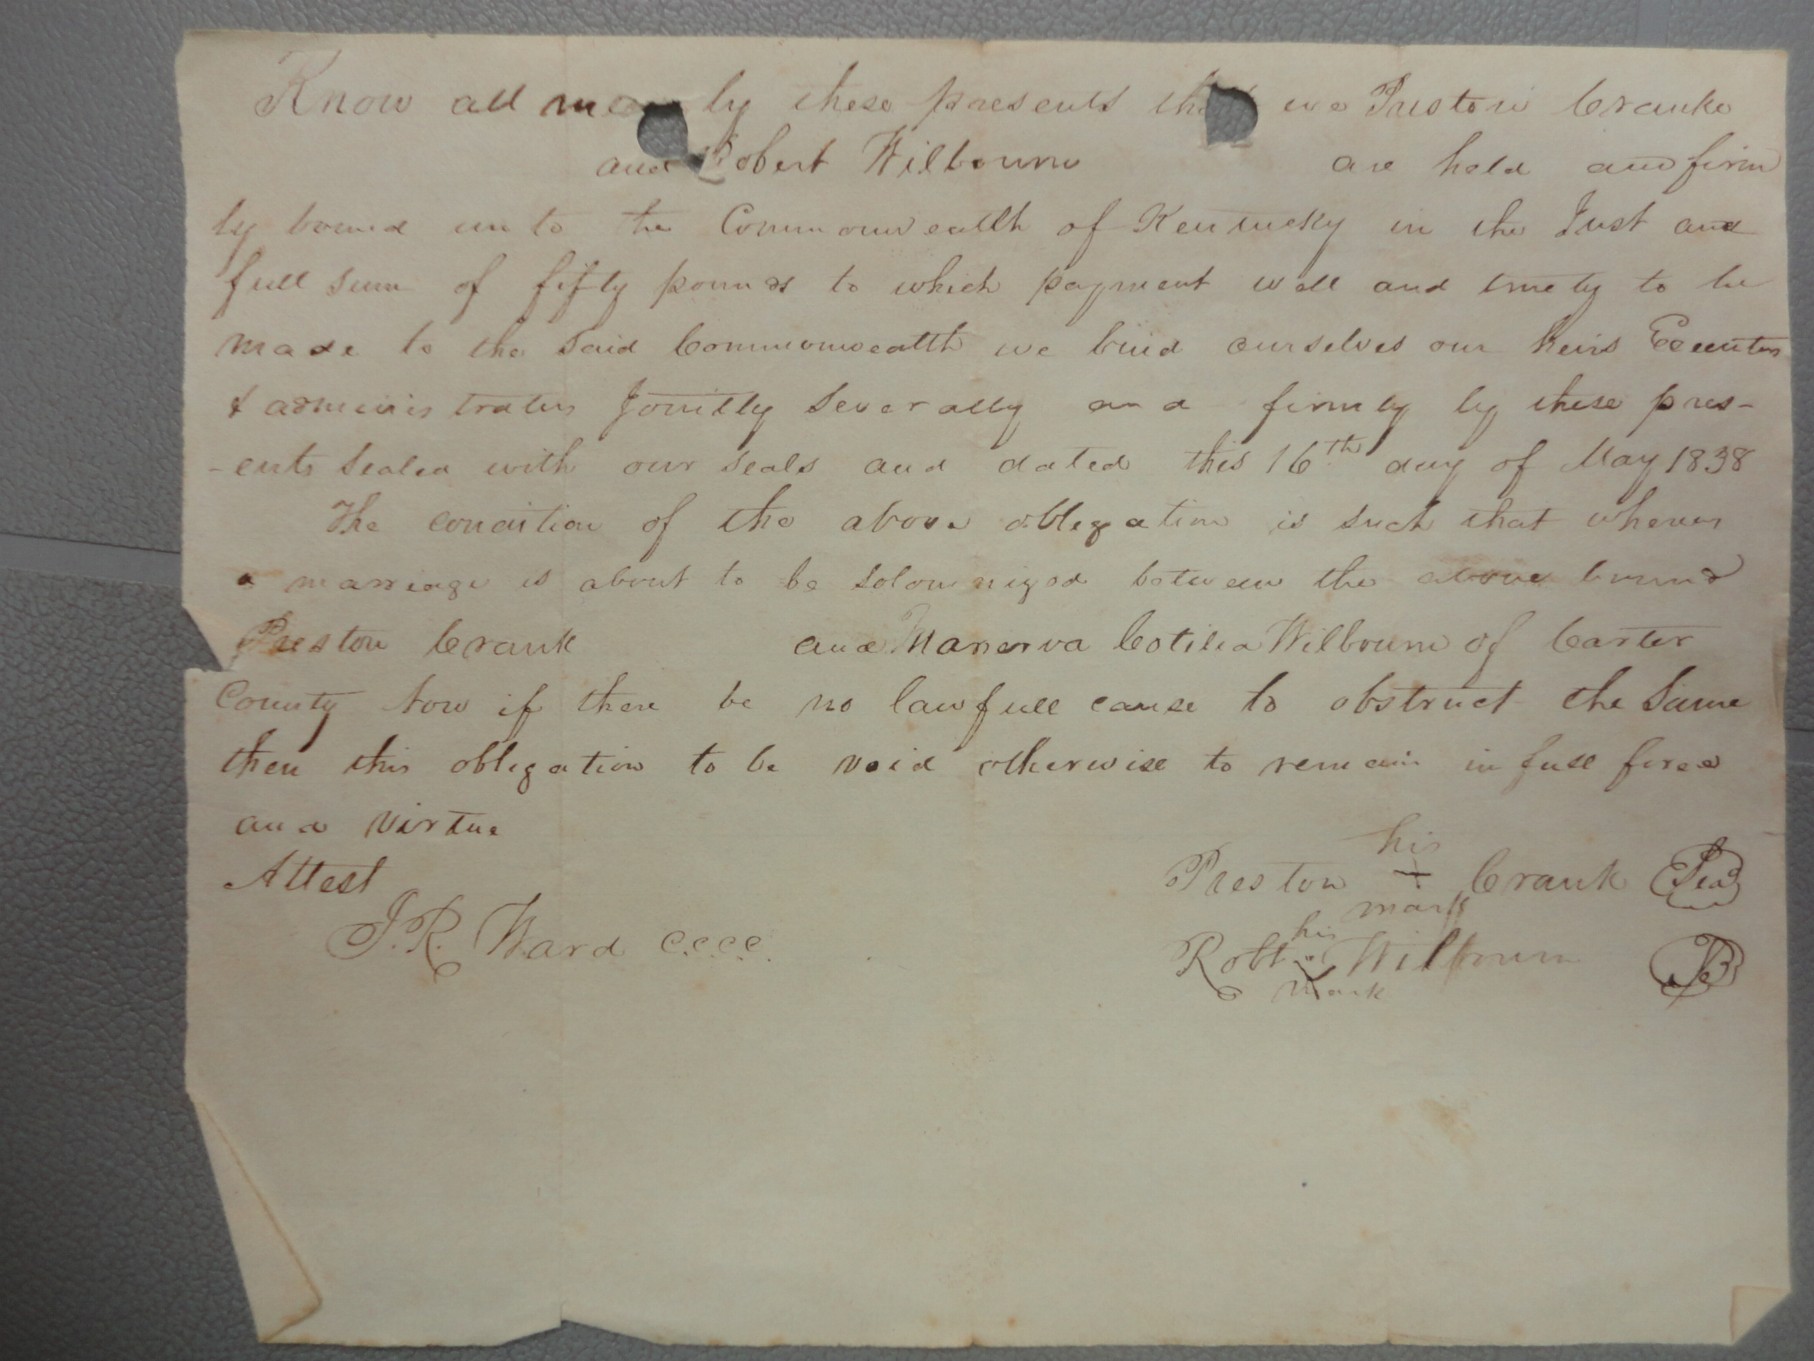 Know all men by these presents that we Preston Cranke
and Robert Wilbourn are held and firm
ly bound unto the Commonwealth of Kentucky in the Just and
full sum of fifty pounds to which payment well and truely to be
made to the said Commonwealth we bind ourselves our heirs Executors
& administrators Jointly Severally and firmly by these pres-
-ents Sealed with our seals and dated this 16th day of May 1838
The condition of the above obligation is such that whereas
a marriage is about to be Solomnized between the above bound
Preston Crank and Manerva Cotilia Wilbourn of Carter
County Now if there be no lawfull cause to obstruct the Same
then this obligation to be void otherwise to remain in full force
and virtue
Attest
J. R. Ward C.C.C.C.
his
Preston + Crank Seal
mark
his
Robt x Wilbourn
mark